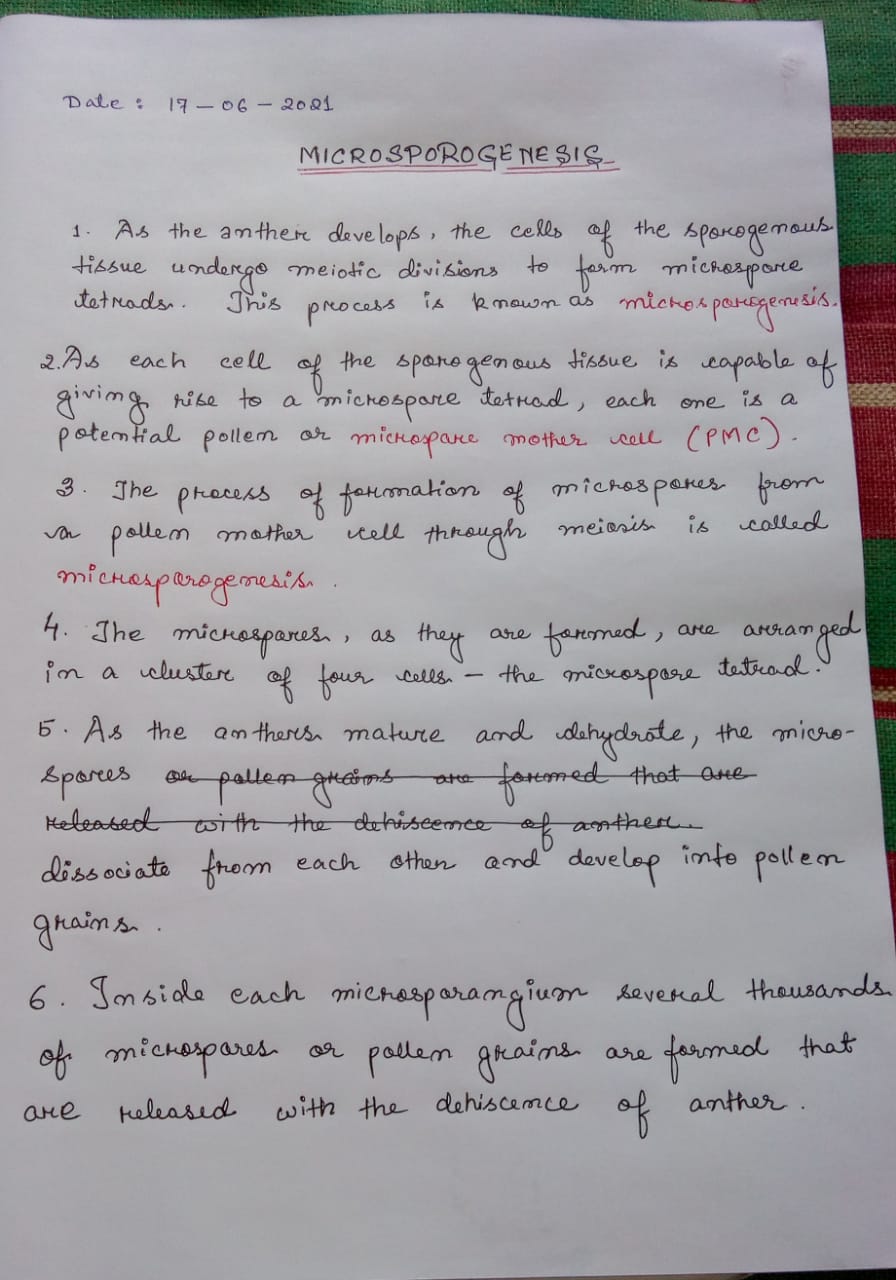 Date : 17 - 06 - 2021
MICROSPOROGENESIS
1. As the anther develops, the cells of the sporogenous
tissue undergo meiotic divisions to form microspore
tetrads. This process is known as microsporogenesis.
2. As each cell of the sporogenous tissue is capable of
giving rise to a microspore tetrad, each one is a
potential pollen or microspore mother cell (PMC).
3. The process of formation of microspores from
a pollen mother cell through meiosis is called
microsporogenesis.
4. The microspores, as they are formed, are arranged
in a cluster of four cells - the microspore tetrad.
5. As the anthers mature and dehydrate, the micro-
spores or pollen grains are formed that are
released with the dehiscence of anther.
dissociate from each other and develop into pollen
grains.
6. Inside each microsporangium several thousands
of microspores or pollen grains are formed that
are released with the dehiscence of anther.